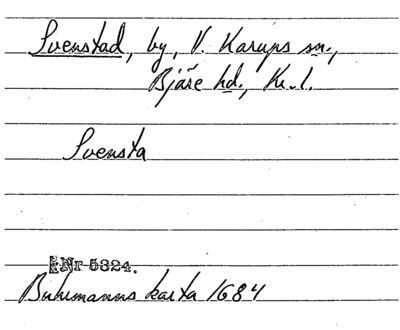 Svenstad, by, V. Karups sn.,
Bjäre hd., Kr. l.
Svensta
Nr 5324.
Buhrmanns karta 1684